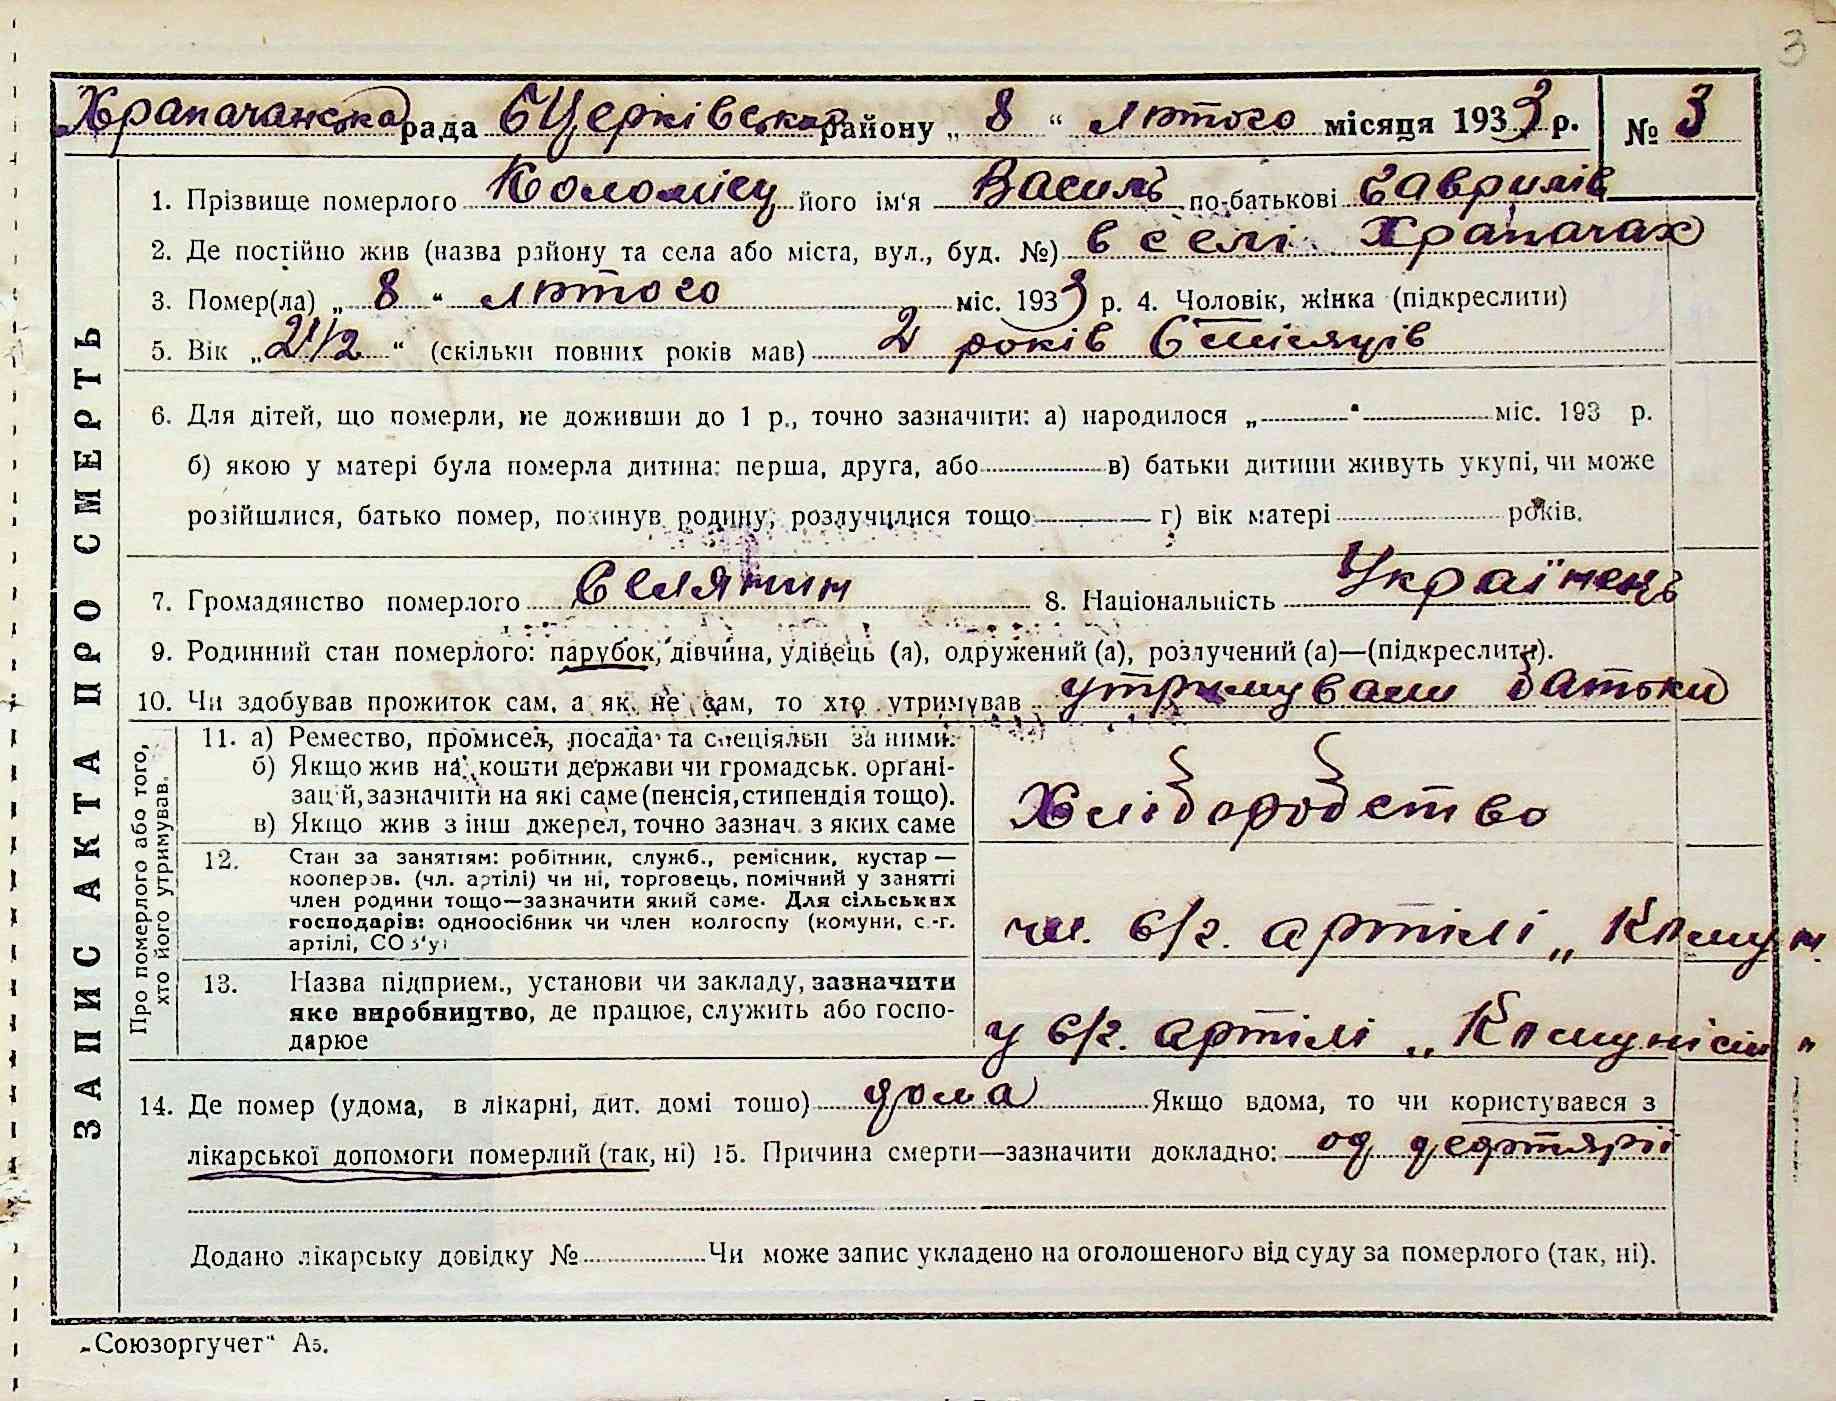 3
Храпачанська рада БЦерківська району „ 8 “ лютого місяця 1933 р. № 3
ЗАПИС АКТА ПРО СМЕРТЬ
1. Прізвище померлого Коломієц його ім'я Василь по-батькові Гаврилів
2. Де постійно жив (назва району та села або міста, вул., буд. №) в селі Храпачах
3. Помер(ла) „ 8 “ лютого міс. 1933 р. 4. Чоловік, жінка (підкреслити)
5. Вік „ 2 1/2 “ (скільки повних років мав) 2 років 6 місяців
6. Для дітей, що померли, не доживши до 1 р., точно зазначити: а) народилося „ “ міс. 193 р.
б) якою у матері була померла дитина: перша, друга, або в) батьки дитини живуть укупі, чи може
розійшлися, батько помер, покинув родину, розлучилися тощо г) вік матері років.
7. Громадянство померлого селянин 8. Національність Українець
9. Родинний стан померлого: парубок, дівчина, удівець (а), одружений (а), розлучений (а)—(підкреслити).
10. Чи здобував прожиток сам, а як не сам, то хто утримував утримували батьки
Про померлого або того, хто його утримував.
11. а) Ремество, промисел, посада та спеціяльн за ними.
б) Якщо жив на кошти держави чи громадськ. органі-
зацій, зазначити на які саме (пенсія, стипендія тощо).
в) Якщо жив з інш джерел, точно зазнач. з яких саме
Хліборобство
12. Стан за заняттям: робітник, служб., ремісник, кустар —
кооперов. (чл. артілі) чи ні, торговець, помічний у занятті
член родини тощо—зазначити який саме. Для сільських
господарів: одноосібник чи член колгоспу (комуни, с.-г.
артілі, СОЗ'у)
чл. с/г. артілі „ Комун.
13. Назва підприєм., установи чи закладу, зазначити
яке виробництво, де працює, служить або госпо-
дарює
у с/г. артілі „ Комуніст "
14. Де помер (удома, в лікарні, дит. домі тощо) дома Якщо вдома, то чи користувався з
лікарської допомоги померлий (так, ні) 15. Причина смерти—зазначити докладно: од дефтярії
Додано лікарську довідку № Чи може запис укладено на оголошеного від суду за померлого (так, ні).
„Союзоргучет" А5.